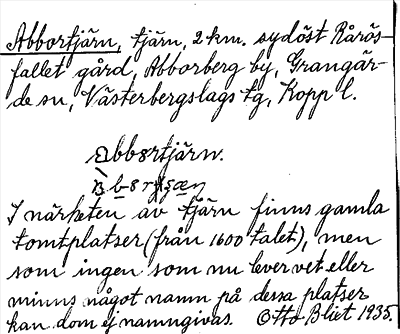 Abbortjärn, tjärn, 2 km. sydöst Rårös-
fallet gård, Abborberg by, Grangär-
de sn, Västerbergslags tg, Kopp l.
abbərtjärn.
I närheten av tjärn finns gamla
tomtplatser (från 1600 talet), men
som ingen som nu lever vet eller
minns något namn på dessa platser
kan dom ej namngivas. Otto Bliet 1935.